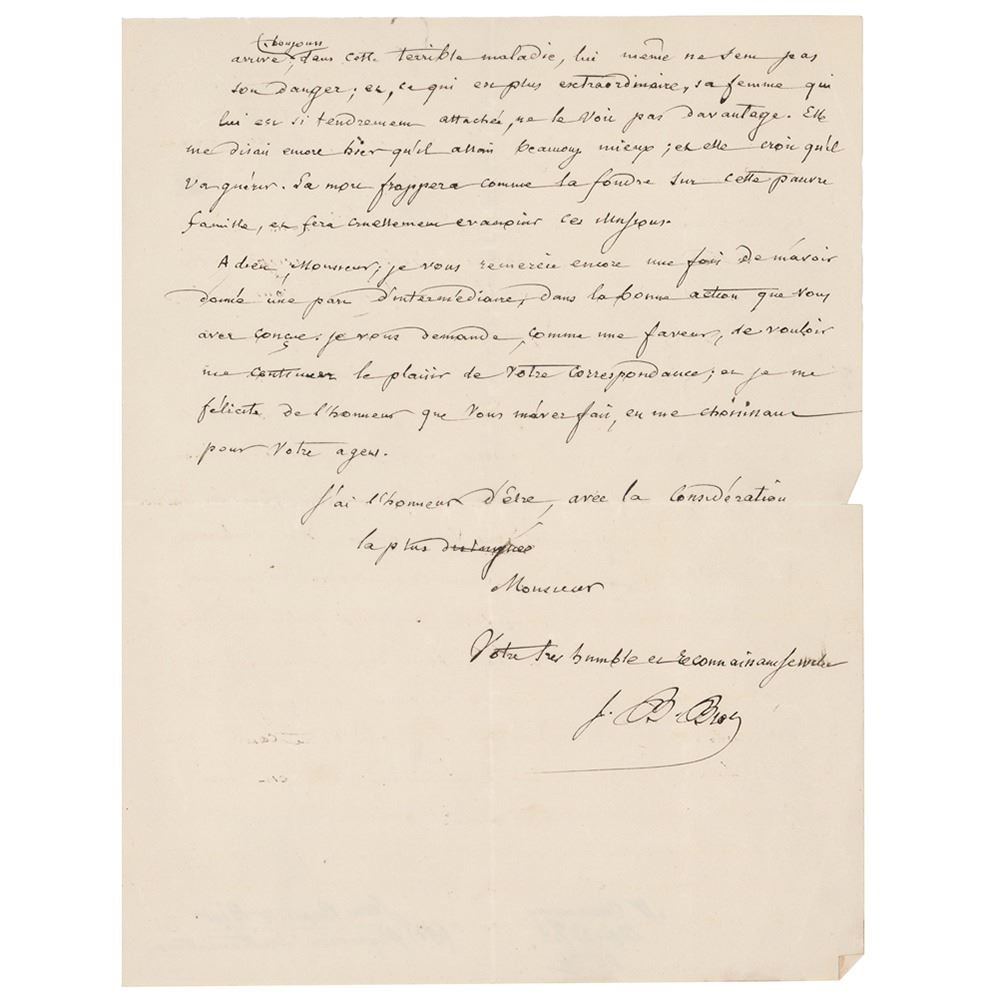 toujours
arrive, dans cette terrible maladie, lui même ne sent pas
son danger; et, ce qui est plus extraordinaire, sa femme qui
lui est si tendrement attachée, ne le voit pas davantage. Elle
me disait encore hier qu'il allait beaucoup mieux; et elle croit qu'il
va guérir. Sa mort frappera comme la foudre sur cette pauvre
famille, et fera cruellement evanouir ces illusions.
Adieu, Monsieur; je vous remercie encore une fois de m'avoir
donné une part d'intermédiaire, dans la bonne action que vous
avez conçue. je vous demande, comme une faveur, de vouloir
me continuer le plaisir de votre correspondance; et je me
félicite de l'honneur que vous m'avez fait, en me choisissant
pour votre agent.
J'ai l'honneur d'être, avec la considération
la plus distinguée
Monsieur
Votre très humble et reconnaissant serviteur
J. B. Biot